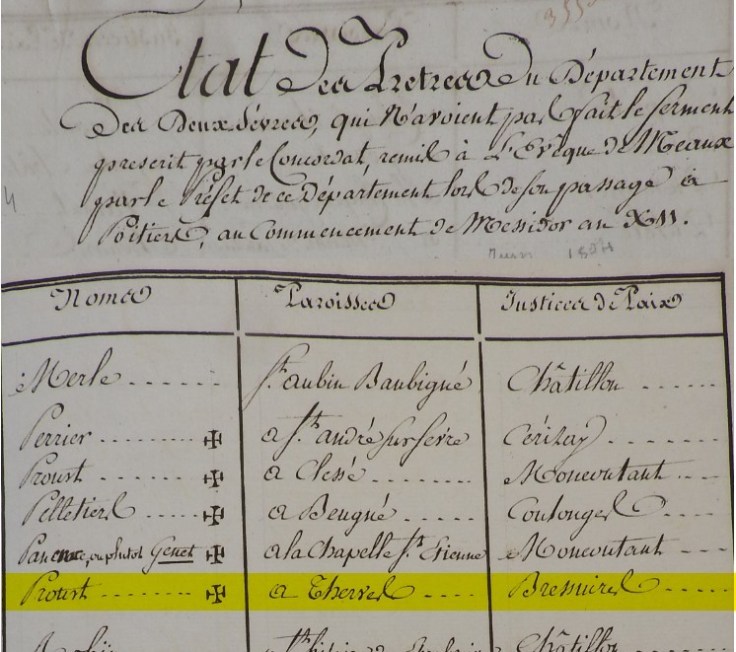 Etat Des Pretres Du Département
Des Deux Sévres, qui N'avoient pas fait le serment
prescrit par le Concordat, remis à L'Evêque de Meaux
par le Préfet de ce Département lors de son passage à
Poitiers, au Commencement de Messidor an XII.
Juin 1804
Noms Paroisses Justices de Paix
Merle ...... St. aubin Baubigné Châtillon ......
Perrier ......... ✠ a St. andré sur sevre Cérizay .......
Proust ........ ✠ a Clessé ........ Moncoutant ....
Pelletier ...... ✠ a Beugné ...... Coulonges ....
ou plutot Genet ✠ a la Chapelle St. Etienne Moncoutant ---
Proust ......... ✠ a Therves .... Bressuires .....
Châtillon